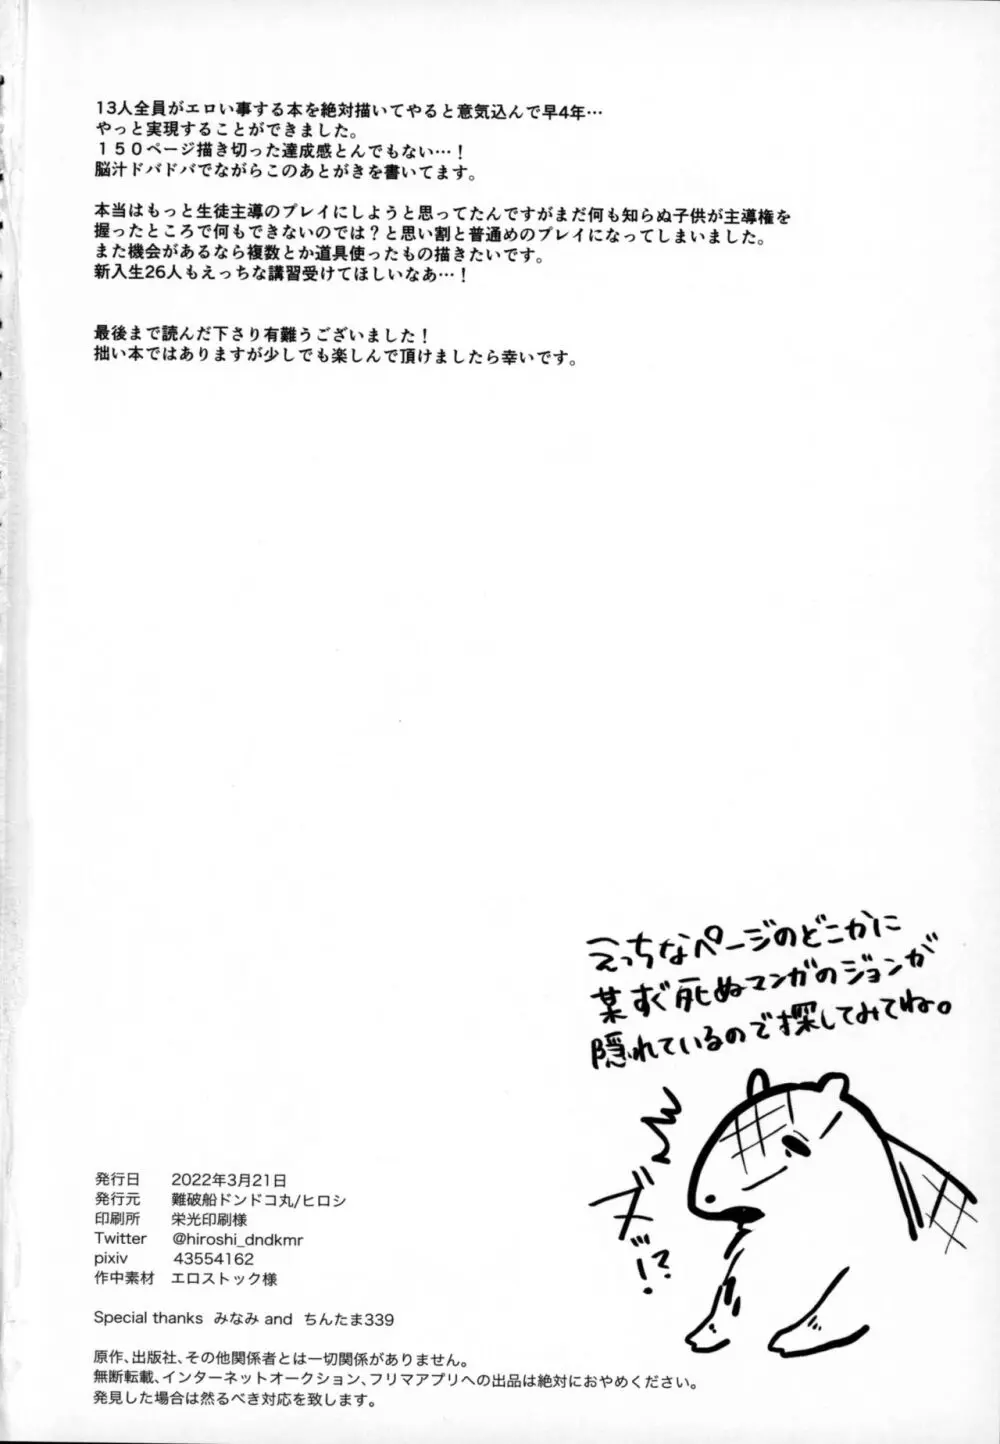 13人全員がエロい事する本を絶対描いてやると意気込んで早4年…
やっと実現することができました。
１５０ページ描き切った達成感とんでもない…！
脳汁ドバドバでながらこのあとがきを書いてます。
本当はもっと生徒主導のプレイにしようと思ってたんですがまだ何も知らぬ子供が主導権を
握ったところで何もできないのでは？と思い割と普通めのプレイになってしまいました。
また機会があるなら複数とか道具使ったもの描きたいです。
新入生26人もえっちな講習受けてほしいなあ…！
最後まで読んだ下さり有難うございました！
拙い本ではありますが少しでも楽しんで頂けましたら幸いです。
えっちなページのどこかに
某すぐ死ぬマンガのジョンが
隠れているので探してみてね。
ヌ゛ー!?
発行日 2022年3月21日
発行元 難破船ドンドコ丸/ヒロシ
印刷所 栄光印刷様
Twitter @hiroshi_dndkmr
pixiv 43554162
作中素材 エロストック様
Special thanks みなみ and ちんたま339
原作、出版社、その他関係者とは一切関係がありません。
無断転載、インターネットオークション、フリマアプリへの出品は絶対におやめください。
発見した場合は然るべき対応を致します。